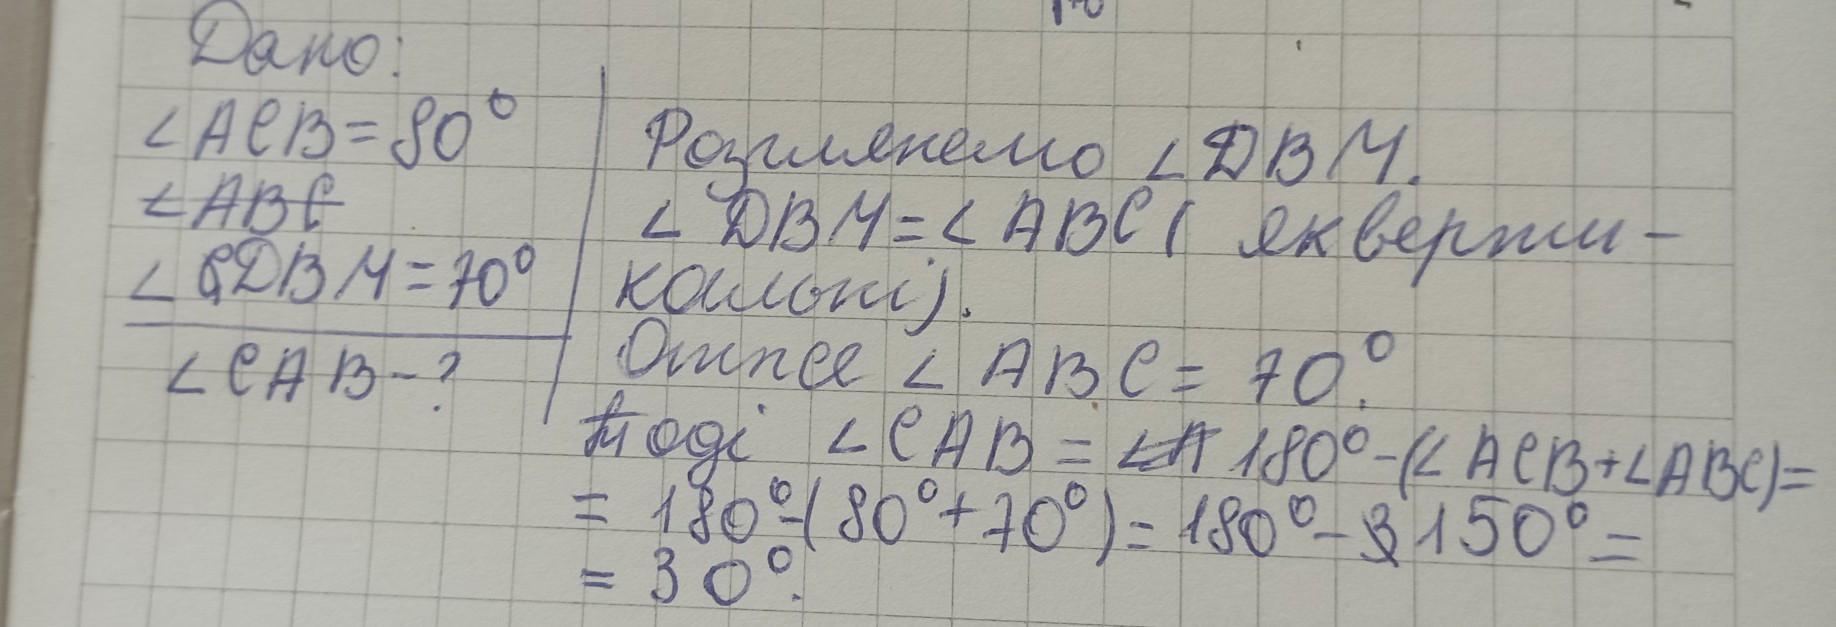 Дано:
∠ACB = 80°
∠ABC
∠DBM = 70°
∠CAB - ?
Розглянемо ∠DBM.
∠DBM = ∠ABC ( як верти-
кальні).
Отже ∠ABC = 70°.
Тоді ∠CAB = 180° - (∠ACB + ∠ABC) =
= 180° - (80° + 70°) = 180° - 150° =
= 30°.